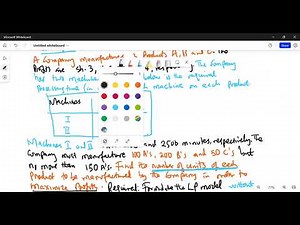 Microsoft Whiteboard
Untitled whiteboard
A Company manufactures Products A, B and C. The
Profits are sh. 3, 4, The Company
has two machines below is the required
Processing time (in machine on each product
Machines
I
II
Machines I and II and 2500 minutes, respectively. The
Company must manufacture 100 A's, 200 B's and 50 C's, but
no more than 150 A's. Find the number of units of each
product to be manufactured by the company in order to
maximize Profits. Required: Formulate the LP model without